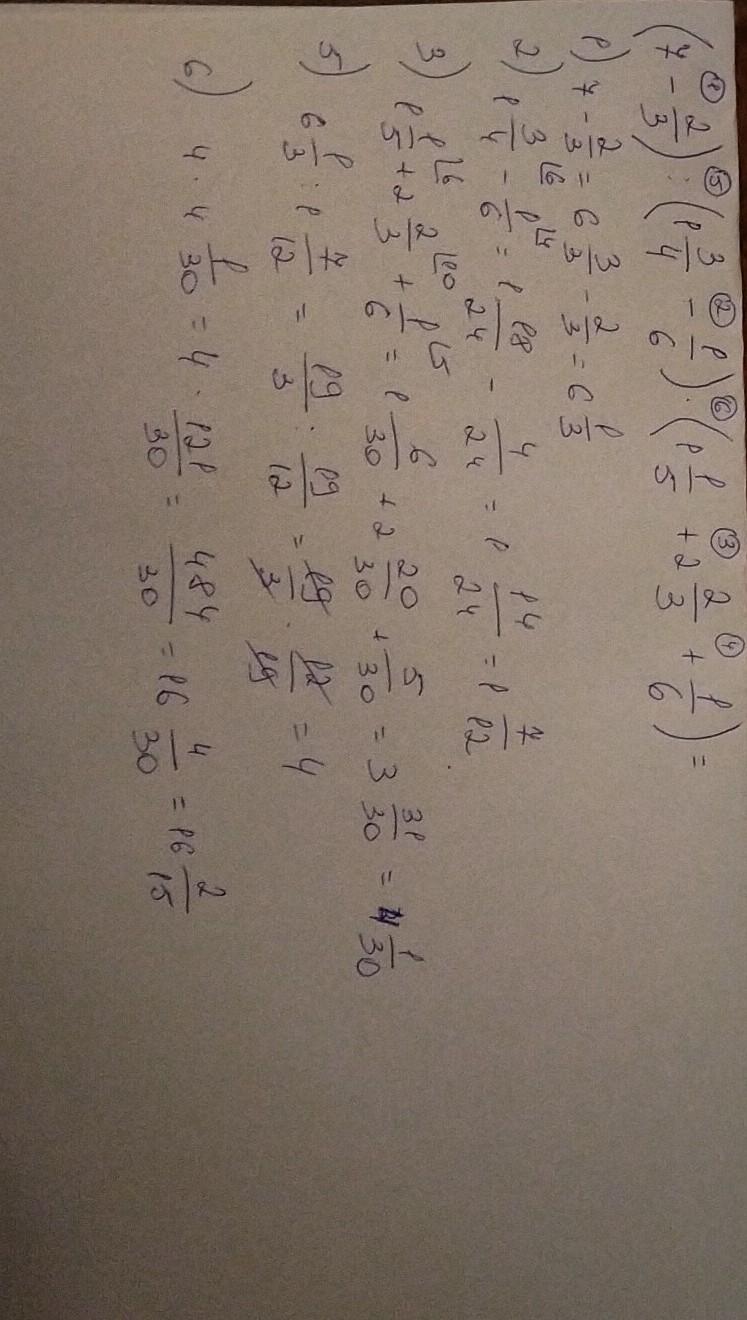 (7 - 2/3) : (1 3/4 - 1/6) · (1 1/5 + 2 2/3 + 1/6) =
① ⑤ ② ⑥ ③ ④
1) 7 - 2/3 = 6 3/3 - 2/3 = 6 1/3
2) 1 3/4 - 1/6 = 1 18/24 - 4/24 = 1 14/24 = 1 7/12
3) 1 1/5 + 2 2/3 + 1/6 = 1 6/30 + 2 20/30 + 5/30 = 3 31/30 = 4 1/30
5) 6 1/3 : 1 7/12 = 19/3 : 19/12 = 19/3 · 12/19 = 4
6) 4 · 4 1/30 = 4 · 121/30 = 484/30 = 16 4/30 = 16 2/15